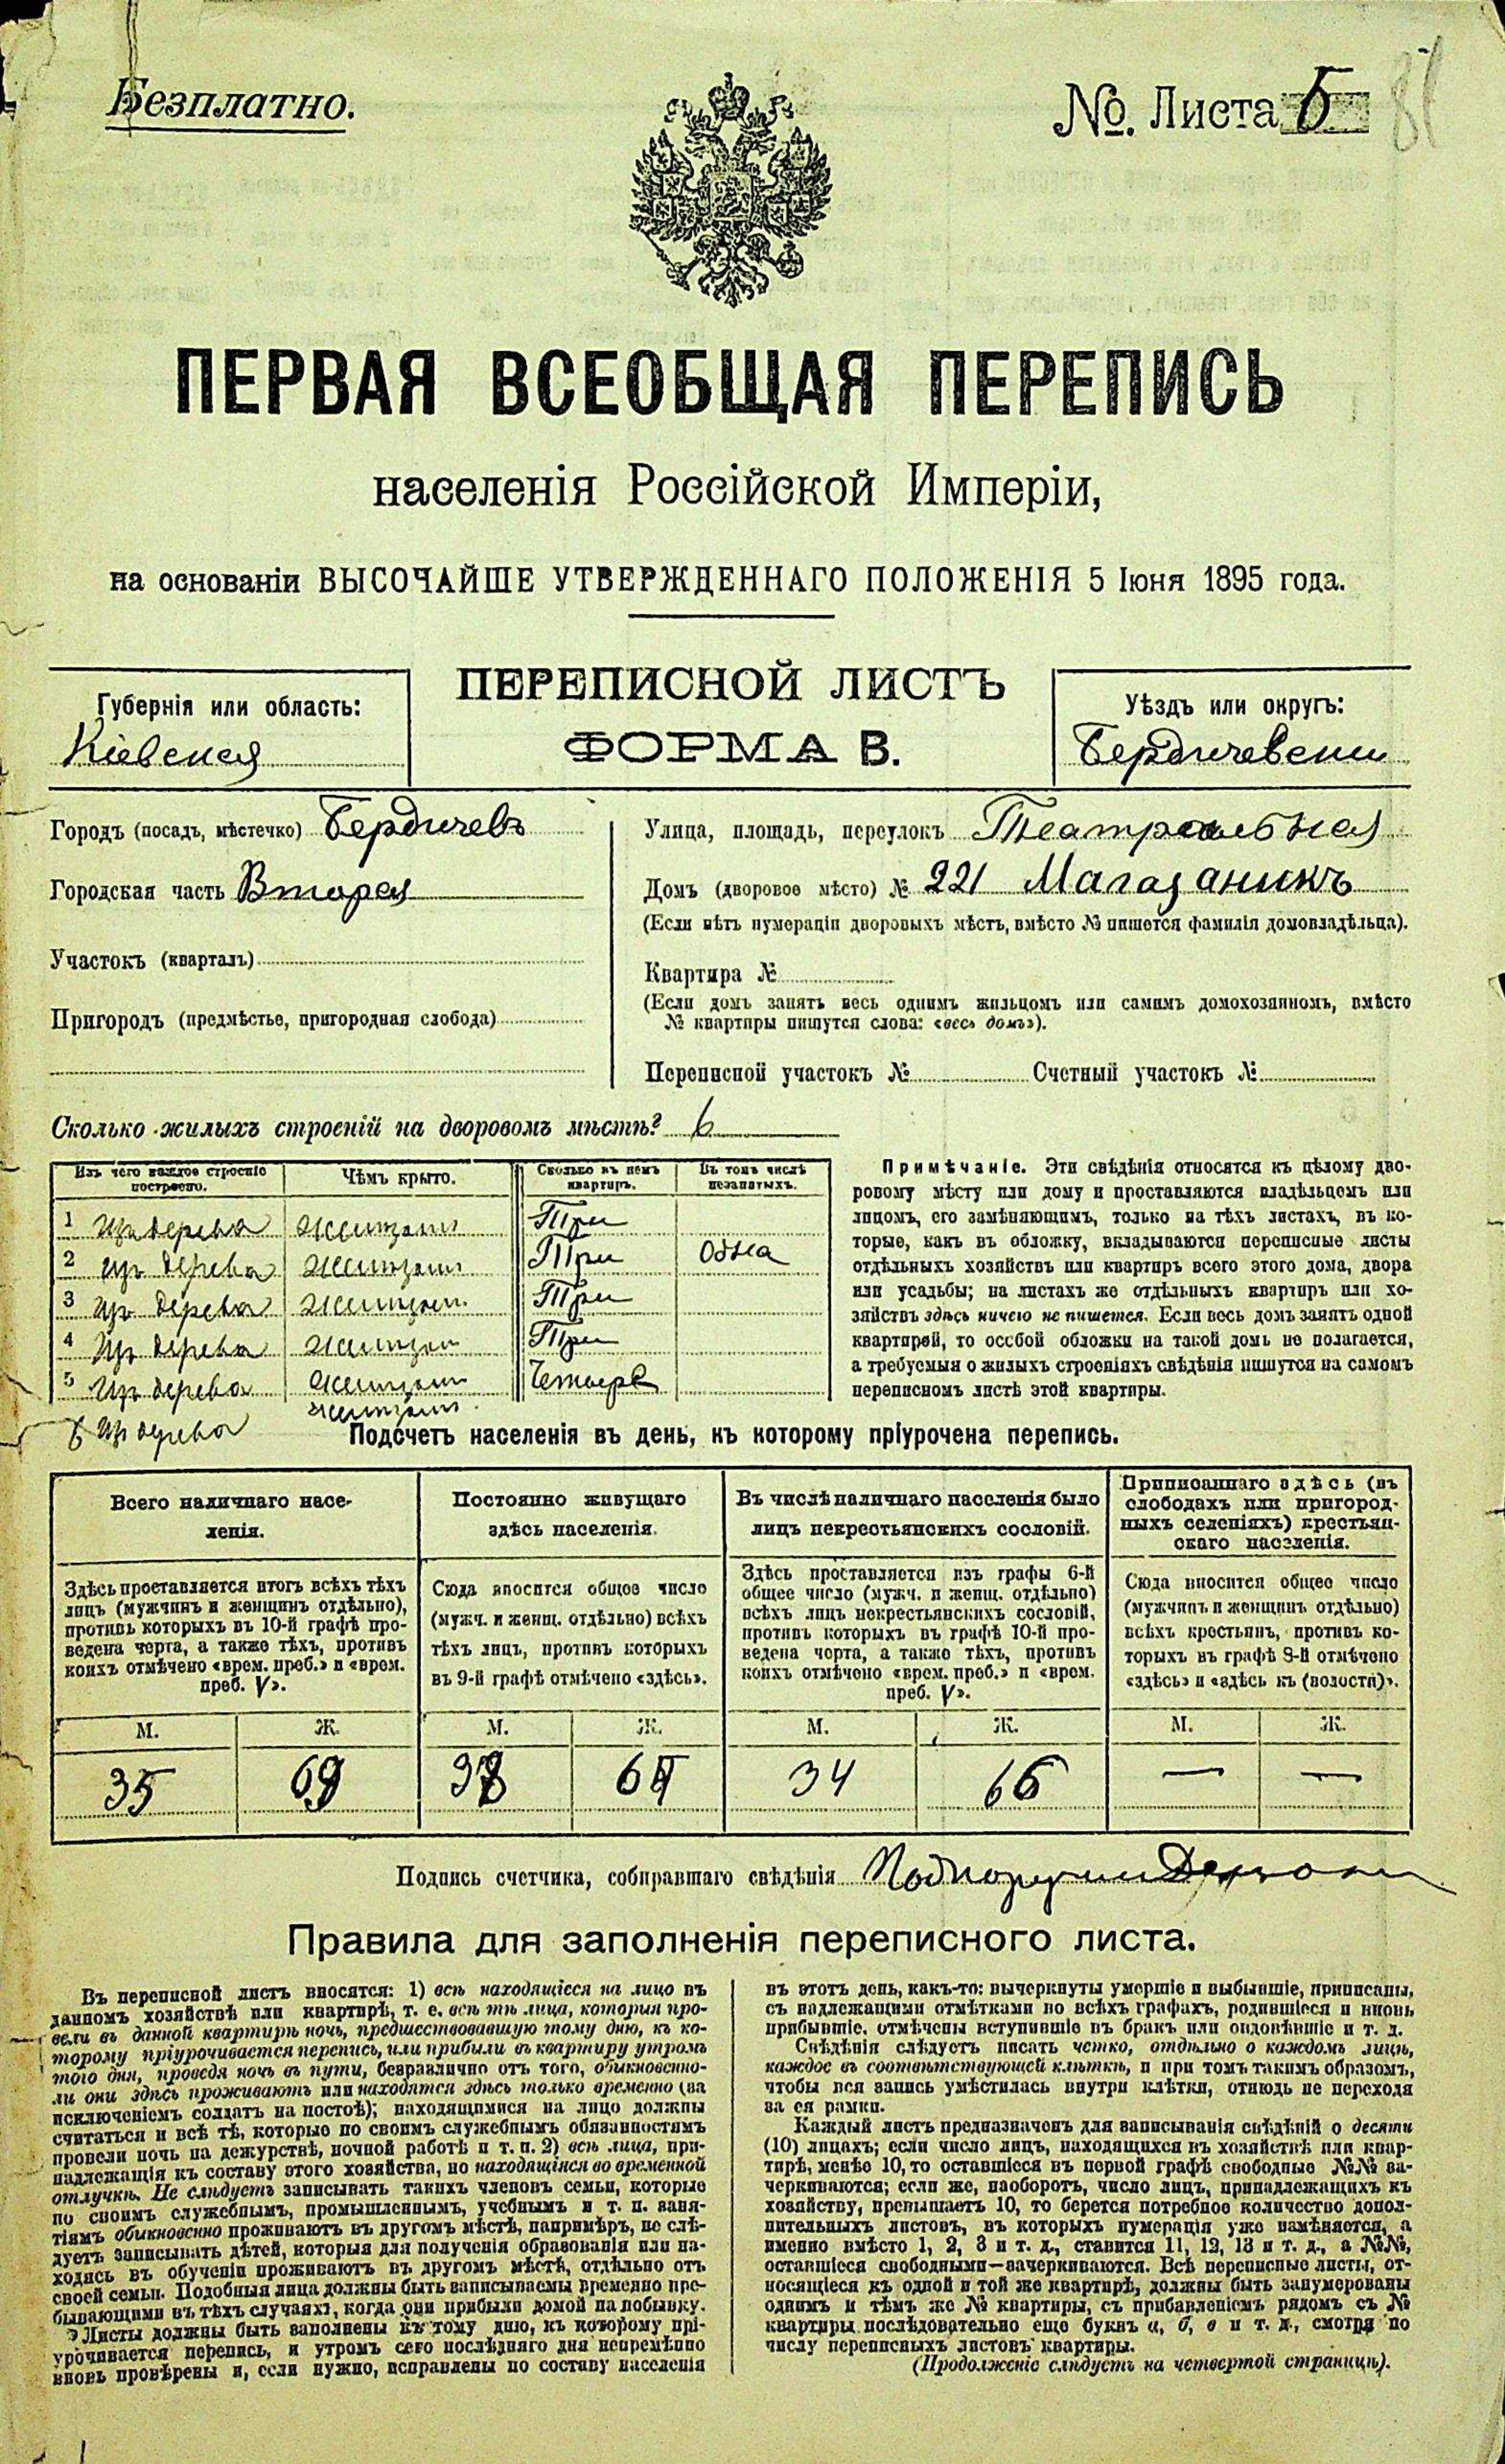 Безплатно.
№. Листа 5
ПЕРВАЯ ВСЕОБЩАЯ ПЕРЕПИСЬ
населенія Россійской Имперіи,
на основаніи ВЫСОЧАЙШЕ УТВЕРЖДЕННАГО ПОЛОЖЕНІЯ 5 Іюня 1895 года.
ПЕРЕПИСНОЙ ЛИСТЪ
ФОРМА В.
Губернія или область:
Кіевская
Уѣздъ или округъ:
Бердичевскій
Городъ (посадъ, мѣстечко) Бердичевъ
Городская часть Вторая
Участокъ (кварталъ)
Пригородъ (предмѣстье, пригородная слобода)
Улица, площадь, переулокъ Театральная
Домъ (дворовое мѣсто) № 221 Магазаникъ
(Если нѣтъ нумераціи дворовыхъ мѣстъ, вмѣсто № пишется фамилія домовладѣльца).
Квартира №
(Если домъ занятъ весь однимъ жильцомъ или самимъ домохозяиномъ, вмѣсто
№ квартиры пишутся слова: «весь домъ»).
Переписной участокъ № Счетный участокъ №
Сколько жилыхъ строеній на дворовомъ мѣстѣ? 6
Изъ чего каждое строеніе построено. Чѣмъ крыто. Сколько въ немъ квартиръ. Въ томъ числѣ незанятыхъ.
1 Изъ дерева Три
2 Изъ дерева Три Одна
3 Изъ дерева Три
4 Изъ дерева Три
5 Изъ дерева Четыре
6 Изъ дерева
Примѣчаніе. Эти свѣдѣнія относятся къ цѣлому дво-
ровому мѣсту или дому и проставляются владѣльцемъ или
лицомъ, его замѣняющимъ, только на тѣхъ листахъ, въ ко-
торые, какъ въ обложку, вкладываются переписные листы
отдѣльныхъ хозяйствъ или квартиръ всего этого дома, двора
или усадьбы; на листахъ же отдѣльныхъ квартиръ или хо-
зяйствъ здѣсь ничего не пишется. Если весь домъ занятъ одной
квартирой, то особой обложки на такой домъ не полагается,
а требуемыя о жилыхъ строеніяхъ свѣдѣнія пишутся на самомъ
переписномъ листѣ этой квартиры.
Подсчетъ населенія въ день, къ которому пріурочена перепись.
Всего наличнаго насе-
ленія.
Постоянно живущаго
здѣсь населенія.
Въ числѣ наличнаго населенія было
лицъ некрестьянскихъ сословій.
Приписаннаго здѣсь (въ
слободахъ или пригород-
ныхъ селеніяхъ) крестьян-
скаго населенія.
Здѣсь проставляется итогъ всѣхъ тѣхъ
лицъ (мужчинъ и женщинъ отдѣльно),
противъ которыхъ въ 10-й графѣ про-
ведена черта, а также тѣхъ, противъ
коихъ отмѣчено «врем. преб.» и «врем.
преб. V».
Сюда вносится общее число
(мужч. и женщ. отдѣльно) всѣхъ
тѣхъ лицъ, противъ которыхъ
въ 9-й графѣ отмѣчено «здѣсь».
Здѣсь проставляется изъ графы 6-й
общее число (мужч. и женщ. отдѣльно)
всѣхъ лицъ некрестьянскихъ сословій,
противъ которыхъ въ графѣ 10-й про-
ведена черта, а также тѣхъ, противъ
коихъ отмѣчено «врем. преб.» и «врем.
преб. V».
Сюда вносится общее число
(мужчинъ и женщинъ отдѣльно)
всѣхъ крестьянъ, противъ ко-
торыхъ въ графѣ 9-й отмѣчено
«здѣсь» и «здѣсь къ (волости)».
М. Ж. М. Ж. М. Ж. М. Ж.
35 69 38 34 66 — —
Подпись счетчика, собиравшаго свѣдѣнія
Правила для заполненія переписного листа.
Въ переписной листъ вносятся: 1) всѣ находящіеся на лицо въ
данномъ хозяйствѣ или квартирѣ, т. е. всѣ тѣ лица, которыя про-
вели въ данной квартирѣ ночь, предшествовавшую тому дню, къ ко-
торому пріурочивается перепись, или прибыли въ квартиру утромъ
того дня, проведя ночь въ пути, безразлично отъ того, обыкновенно-
ли они здѣсь проживаютъ или находятся здѣсь только временно (за
исключеніемъ солдатъ на постоѣ); находящимися на лицо должны
считаться и всѣ тѣ, которые по своимъ служебнымъ обязанностямъ
провели ночь на дежурствѣ, ночной работѣ и т. п. 2) всѣ лица, при-
надлежащія къ составу этого хозяйства, но находящіяся во временной
отлучкѣ. Не слѣдуетъ записывать такихъ членовъ семьи, которые
по своимъ служебнымъ, промышленнымъ, учебнымъ и т. п. заня-
тіямъ обыкновенно проживаютъ въ другомъ мѣстѣ, напримѣръ, не слѣ-
дуетъ записывать дѣтей, которыя для полученія образованія или на-
ходясь въ обученіи проживаютъ въ другомъ мѣстѣ, отдѣльно отъ
своей семьи. Подобныя лица должны быть записываемы временно пре-
бывающими въ тѣхъ случаяхъ, когда они прибыли домой на побывку.
Листы должны быть заполнены къ тому дню, къ которому прі-
урочивается перепись, и утромъ сего послѣдняго дня непремѣнно
вновь провѣрены и, если нужно, исправлены по составу населенія
въ этотъ день, какъ-то: вычеркнуты умершіе и выбывшіе, приписаны,
съ надлежащими отмѣтками во всѣхъ графахъ, родившіеся и вновь
прибывшіе, отмѣчены вступившіе въ бракъ или овдовѣвшіе и т. д.
Свѣдѣнія слѣдуетъ писать четко, отдѣльно о каждомъ лицѣ,
каждое въ соотвѣтствующей клѣткѣ, и при томъ такимъ образомъ,
чтобы вся запись умѣстилась внутри клѣтки, отнюдь не переходя
за ея рамки.
Каждый листъ предназначенъ для записыванія свѣдѣній о десяти
(10) лицахъ; если число лицъ, находящихся въ хозяйствѣ или квар-
тирѣ, менѣе 10, то оставшіеся въ первой графѣ свободные №№ за-
черкиваются; если же, наоборотъ, число лицъ, принадлежащихъ къ
хозяйству, превышаетъ 10, то берется потребное количество допол-
нительныхъ листовъ, въ которыхъ нумерація уже измѣняется, а
именно вмѣсто 1, 2, 3 и т. д., ставится 11, 12, 13 и т. д., а №№,
оставшіеся свободными—зачеркиваются. Всѣ переписные листы, от-
носящіеся къ одной и той же квартирѣ, должны быть занумерованы
однимъ и тѣмъ же № квартиры, съ прибавленіемъ рядомъ съ №
квартиры послѣдовательно еще буквъ а, б, в и т. д., смотря по
числу переписныхъ листовъ квартиры.
(Продолженіе слѣдуетъ на четвертой страницѣ).